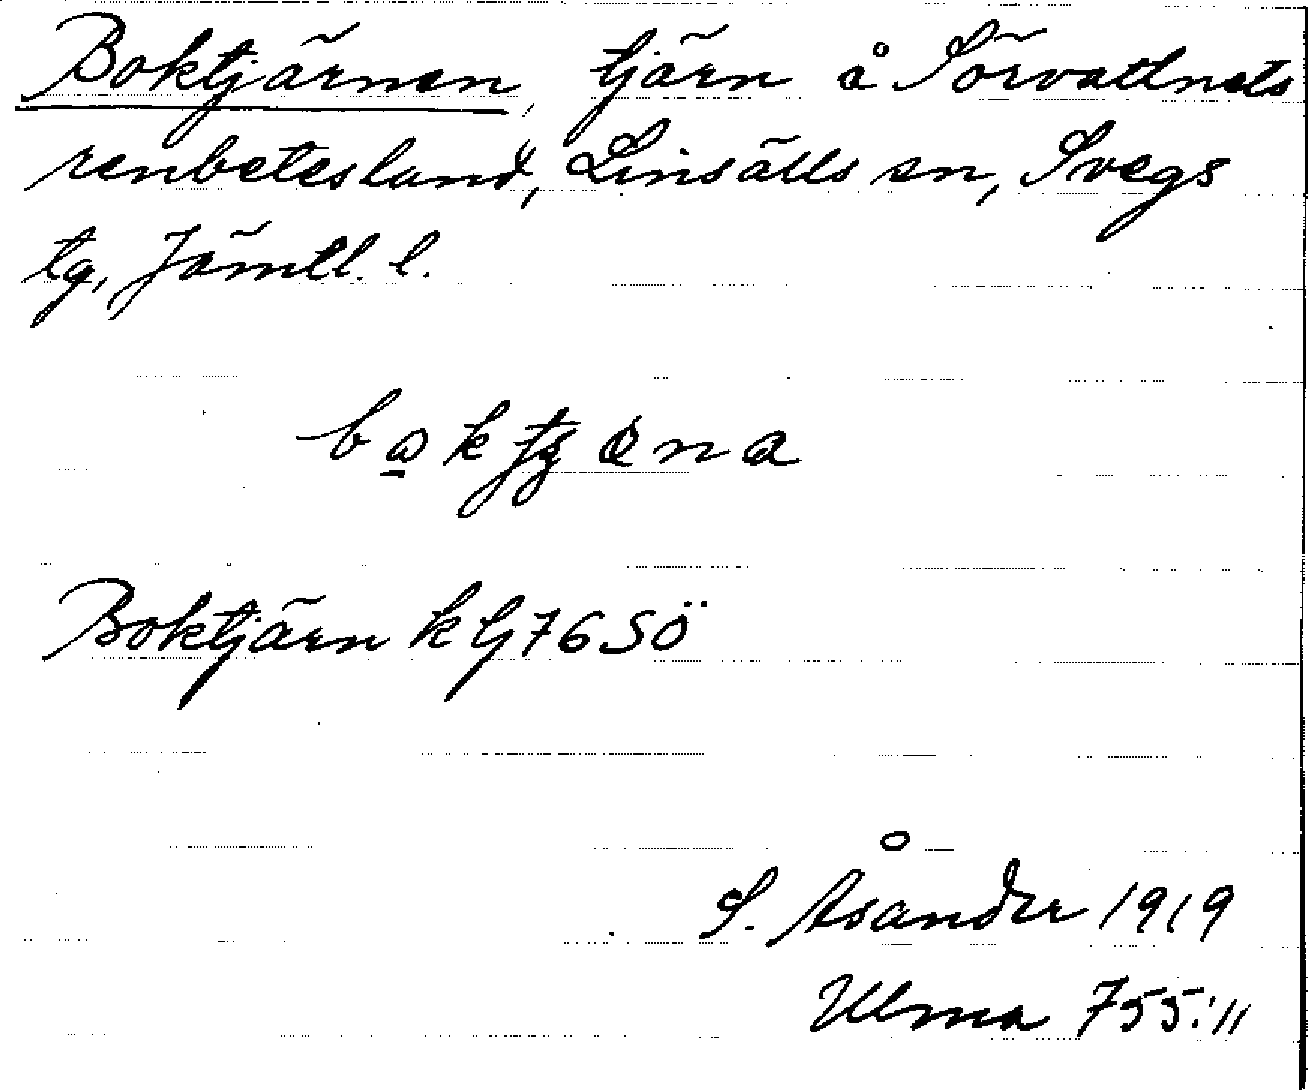 Boktjärnen, tjärn å Sörvattnets
renbetesland, Linsälls sn, Svegs
tg, Jämtl. l.
Boktjärn kG76SÖ
S. Åsander 1919
Ulma 755:11